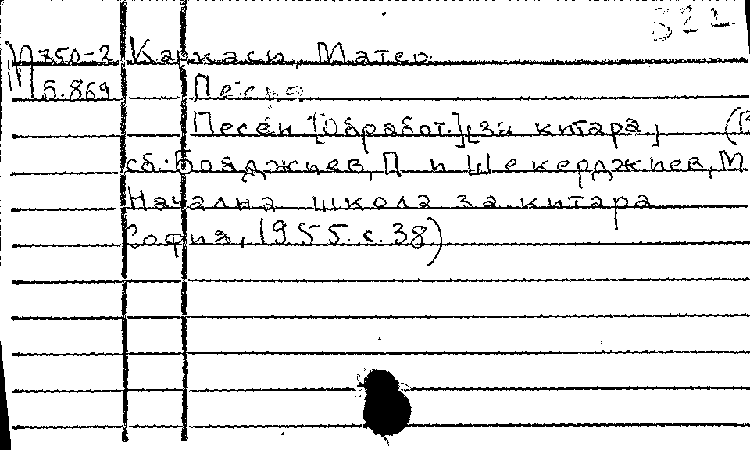 822
М 750-2 Каркаси, Матео
М Б.869 Песня
Песен [Обработ.] [за китара] (В
сб: Бояджиев, П и Шекерджиев, М
Начална школа за китара
София, 1955. с. 38)